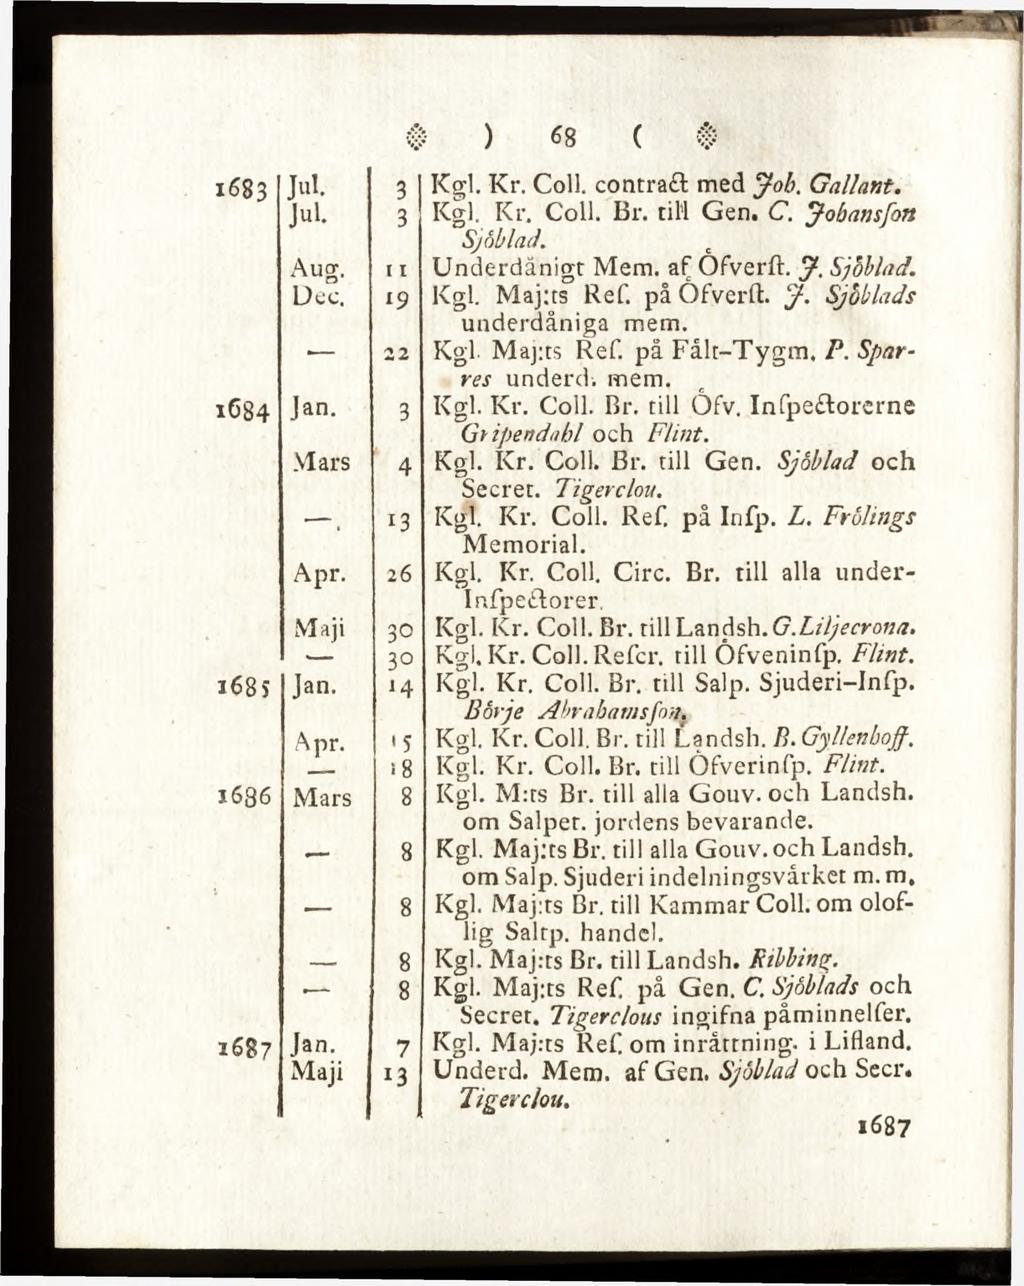 ) 68 (
1683 Jul. 3 Kgl. Kr. Coll. contract med Joh. Gallant.
Jul. 3 Kgl. Kr. Coll. Br. till Gen. C. Johansſon
Sjöblad.
Aug. 11 Underdånigt Mem. af Öfverſt. J. Sjöblad.
Dec. 19 Kgl. Maj:ts Reſ. på Öfverſt. J. Sjöblads
underdåniga mem.
— 22 Kgl. Maj:ts Reſ. på Fält-Tygm. P. Spar-
res underd. mem.
1684 Jan. 3 Kgl. Kr. Coll. Br. till Öfv. Inſpectorerne
Gripendahl och Flint.
Mars 4 Kgl. Kr. Coll. Br. till Gen. Sjöblad och
Secret. Tigerclou.
— 13 Kgl. Kr. Coll. Reſ. på Inſp. L. Frölings
Memorial.
Apr. 26 Kgl. Kr. Coll. Circ. Br. till alla under-
Inſpectorer.
Maji 30 Kgl. Kr. Coll. Br. till Landsh. G. Liljecrona.
— 30 Kgl. Kr. Coll. Reſcr. till Öfveninſp. Flint.
1685 Jan. 14 Kgl. Kr. Coll. Br. till Salp. Sjuderi-Inſp.
Börje Abrahamsſon.
Apr. 15 Kgl. Kr. Coll. Br. till Landsh. B. Gyllenhoff.
— 18 Kgl. Kr. Coll. Br. till Öfverinſp. Flint.
1686 Mars 8 Kgl. M:ts Br. till alla Gouv. och Landsh.
om Salpet. jordens bevarande.
— 8 Kgl. Maj:ts Br. till alla Gouv. och Landsh.
om Salp. Sjuderi indelningsvärket m. m.
— 8 Kgl. Maj:ts Br. till Kammar Coll. om olof-
lig Saltp. handel.
— 8 Kgl. Maj:ts Br. till Landsh. Ribbing.
— 8 Kgl. Maj:ts Reſ. på Gen. C. Sjöblads och
Secret. Tigerclous ingifna påminnelſer.
1687 Jan. 7 Kgl. Maj:ts Reſ. om inrättning. i Lifland.
Maji 13 Underd. Mem. af Gen. Sjöblad och Secr.
Tigerclou.
1687